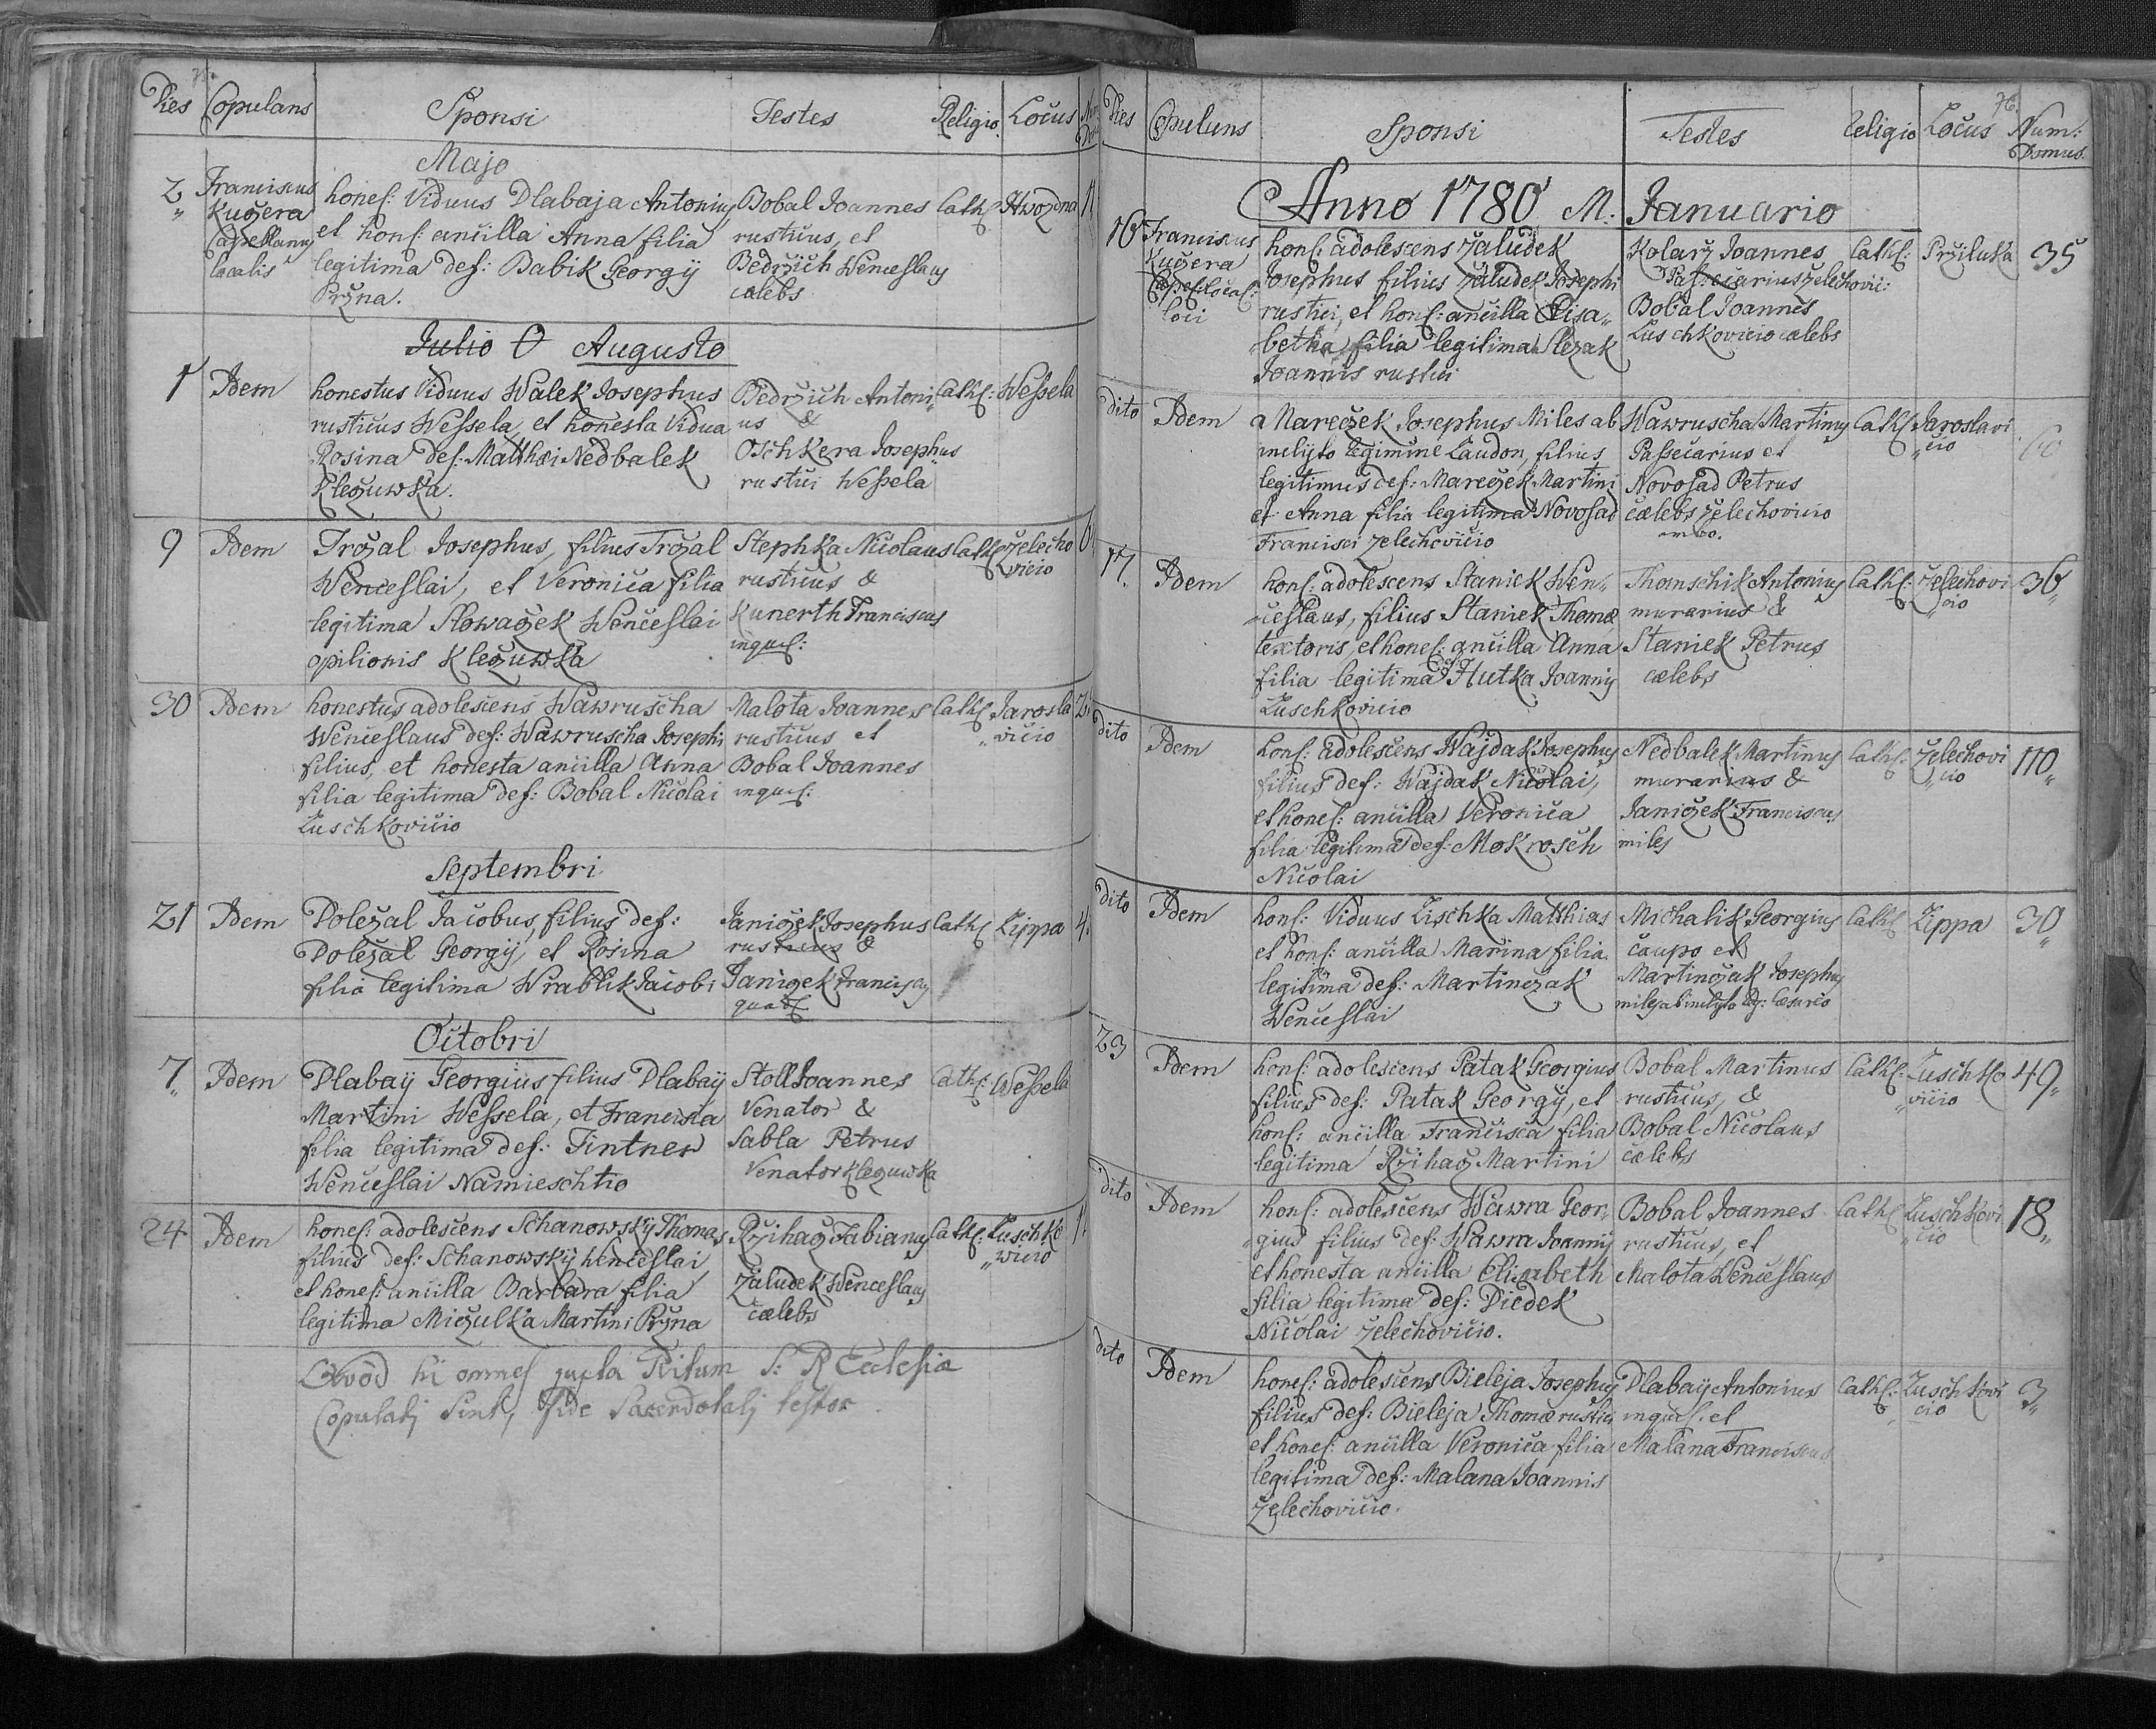 75.
Dies Copulans Sponsi Testes Religio. Locus
Majo
2 Franciscus Kuczera Capellanus localis
hones: Viduus Dlabaja Antonius
et hons: ancilla Anna filia
legitima def: Babik Georgÿ
Przna.
Bobal Joannes
rusticus, et
Bedrzich Wenceslaus
cœlebs
Cath: Hwozdna
Julio 0 Augusto
1 Idem
honestus Viduus Walek Josephus
rusticus Wessela, et honesta Vidua
Rosina def: Matthæi Nedbalek
Kleczuwka.
Bedrzich Antoni
us &
Oschkera Josephus
rustici Wessela
Cath: Wessela
9 Idem
Trczal Josephus, filius Trczal
Wenceslai, et Veronica filia
legitima Slowaczek Wenceslai
opilionis Kleczuwka
Stephka Nicolaus
rusticus &
Kunerth Franciscus
inquil:
Cath: Zelecho
vicio
30 Idem
honestus adolescens Wawruscha
Wenceslaus def: Wawruscha Josephi
filius, et honesta ancilla Anna
filia legitima def: Bobal Nicolai
Luschkovicio
Malota Joannes
rusticus et
Bobal Joannes
inquil:
Cath: Jarosla
vicio
Septembri
21 Idem
Doleżal Jacobus, filius def:
Doleżal Georgÿ, et Rosina
filia legitima Wrablik Jacobi
Janiczek Josephus
rusticus &
Janiczek Franciscus
Cath: Lippa 4.
Octobri
7 Idem
Dlabaÿ Georgius filius Dlabaÿ
Martini Wessela, et Francisca
filia legitima def: Tintner
Wenceslai Namieschtio
Stoll Joannes
Venator &
Sabla Petrus
Venator Kleczuwka
Cath: Wessela
24 Idem
hones: adolescens Schanowskÿ Thomas
filius def: Schanowskÿ Wenceslai
et hones: ancilla Barbara filia
legitima Miczulka Martini Przna
Rzihacz Fabianus
Zaludek Wenceslaus
cœlebs
Cath: Luschko
wicio
Qvod hi omnes juxta Ritum S: R Ecclesiæ
Copulatj Sint, fide Sacerdotalj testor.
76.
Dies Copulans Sponsi Testes Religio Locus Num: Domus.
Anno 1780 M: Januario
16 Franciscus Kuczera
loci
hons: adolescens Zaludek
Josephus filius Zaludek Josephi
rustici, et hons: ancilla Elisa
betha, filia legitima Slezak
Joannis rustici
Kolarz Joannes
Passecarius Zelechovic:
Bobal Joannes
Luschkovicio cælebs
Cath: Prziluka 35
dito Idem
a Mareczek Josephus Miles ab
inclyto Regimine Laudon, filius
legitimus def: Mareczek Martini
et Anna filia legitima Novosad
Francisci Zelechovicio
Wawruscha Martinus
Passecarius et
Novosad Petrus
cælebs Zelechovicio
ambo.
Cath: Jaroslavi
cio
17. Idem
hons: adolescens Staniek Wen
ceslaus, filius Staniek Thomæ
textoris, et hones: ancilla Anna
filia legitima Hutka Joannis
Luschkovicio
Thomschik Antonius
murarius &
Staniek Petrus
cælebs
Cath: Zelechovi
cio 36
dito Idem
hons: adolescens Wajdak Josephus
filius def: Wajdak Nicolai,
et hones: ancilla Veronica
filia legitima def: Mokrosch
Nicolai
Nedbalek Martinus
murarius &
Janiczek Franciscus
miles
Cath: Zelechovi
cio 110
dito Idem
hons: Viduus Lischka Matthias
et hons: ancilla Marina filia
legitima def: Martinczak
Wenceslai
Michalik Georgius
caupo et
Martinczak Josephus
miles ab inclyto Rg: Cæsareo
Cath: Lippa 30
23 Idem
hons: adolescens Patak Georgius
filius def: Patak Georgÿ, et
hons: ancilla Francisca filia
legitima Rzihacz Martini
Bobal Martinus
rusticus, &
Bobal Nicolaus
cælebs
Cath: Luschko
vicio 49
dito Idem
hons: adolescens Wawra Geor
gius filius def: Wawra Joannis
et honesta ancilla Elisabeth
filia legitima def: Diedek
Nicolai Zelechovicio.
Bobal Joannes
rusticus, et
Malota Wenceslaus
Cath: Luschkovi
cio 18
dito Idem
hones: adolescens Bieleja Josephus
filius def: Bieleja Thomæ rustici
et hones: ancilla Veronica filia
legitima def: Malana Joannis
Zelechovicio.
Dlabaÿ Antonius
inquil: et
Malana Franciscus
Cath: Luschkovi
cio 3